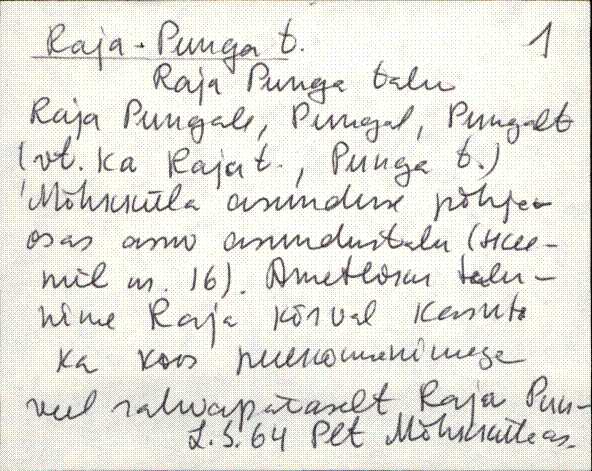 Raja-Punga t. 1
Raja Punga talu
Raja Pungale, Pungal, Pungalt
(vt. ka Raja t., Punga t.)
Mõhkküla asunduse põhja-
osas asuv asundustalu (skee-
mil nr. 16). Ametlikku talu-
nime Raja kõrval kasut.
ka koos perekonnanimega
veel rahvapäraselt Raja Pun-
L.S. 64 Plt Mõhkküla as.